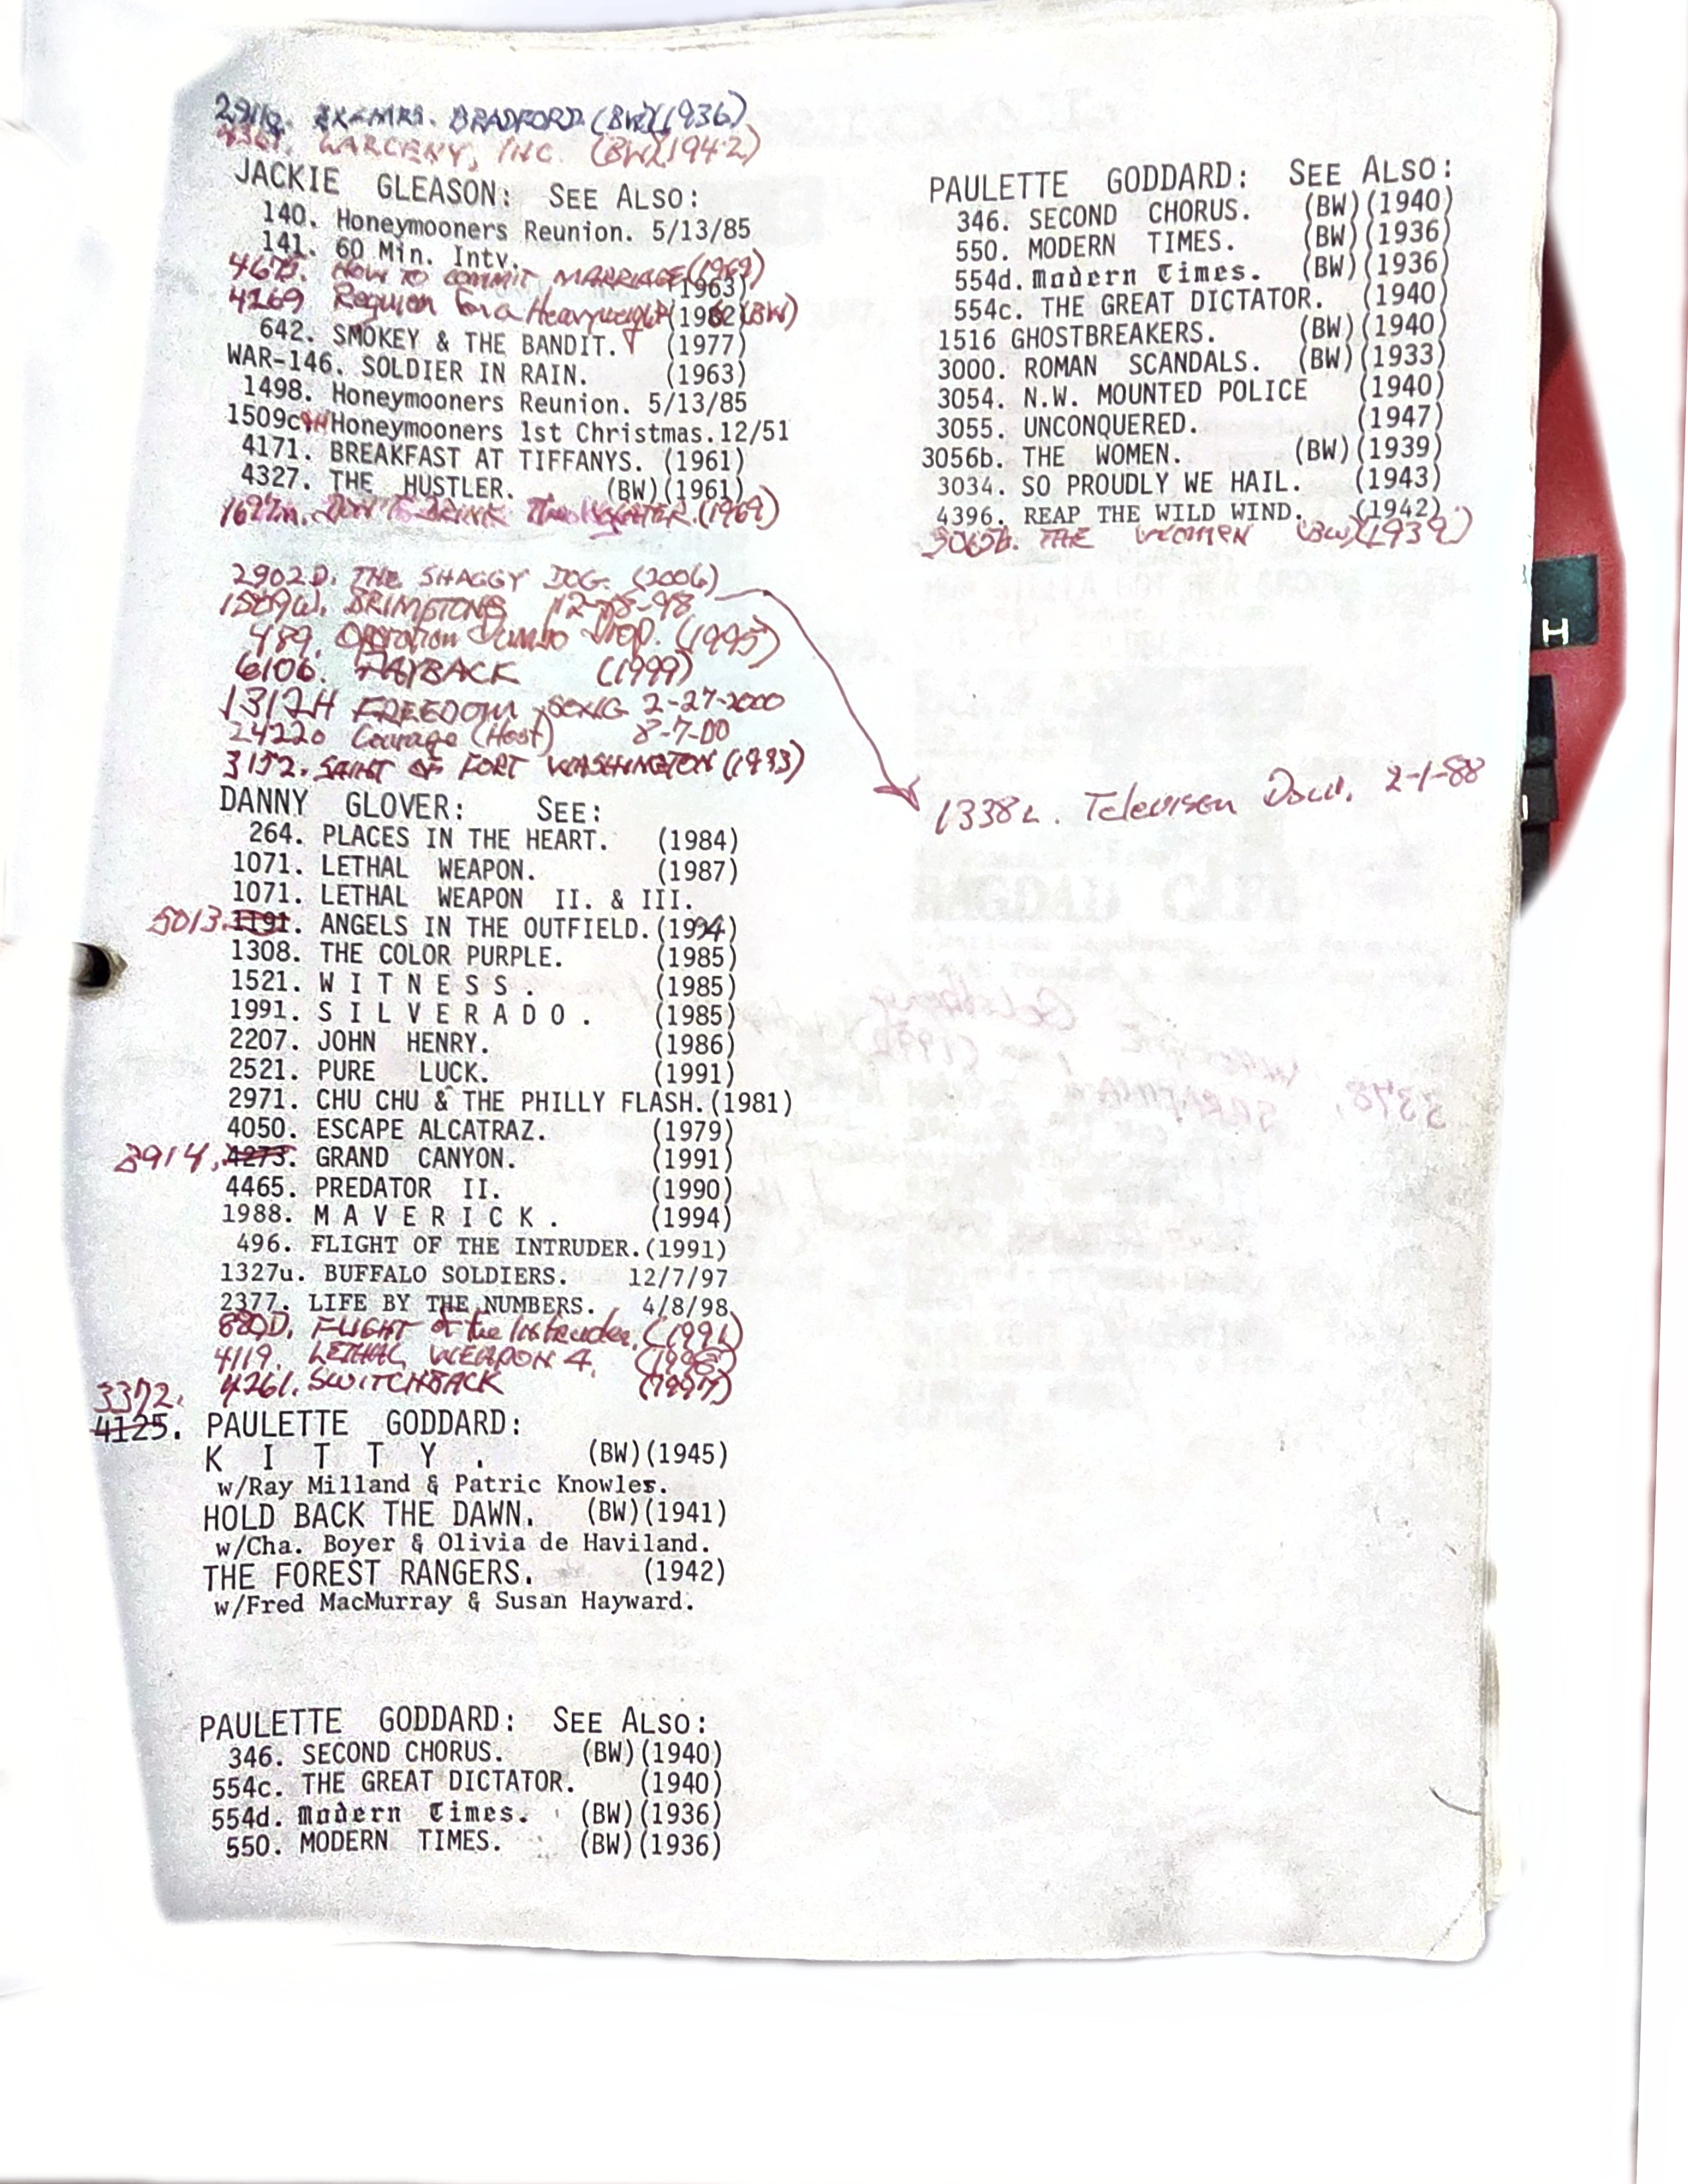 EX-MRS. BRADFORD. (BW)(1936)
LARCENY, INC. (BW)(1942)
JACKIE GLEASON: SEE ALSO:
140. Honeymooners Reunion. 5/13/85
141. 60 Min. Intv.
HOW TO COMMIT MARRIAGE (1969)
(1963)
4269 Requiem for a Heavyweight (1962)(BW)
642. SMOKEY & THE BANDIT. (1977)
WAR-146. SOLDIER IN RAIN. (1963)
1498. Honeymooners Reunion. 5/13/85
1509c Honeymooners 1st Christmas. 12/51
4171. BREAKFAST AT TIFFANYS. (1961)
4327. THE HUSTLER. (BW)(1961)
DON'T DRINK The WATER. (1969)
2902D. THE SHAGGY DOG. (2006)
1509W. BRIMSTONE 12-8-98
489. Operation Dumbo Drop. (1995)
6106. PAYBACK (1999)
1312H FREEDOM SONG 2-27-2000
2422o Courage (Host) 8-7-00
3152. SAINT OF FORT WASHINGTON (1993)
DANNY GLOVER: SEE:
264. PLACES IN THE HEART. (1984)
1071. LETHAL WEAPON. (1987)
1071. LETHAL WEAPON II. & III.
5013. 1191. ANGELS IN THE OUTFIELD. (1994)
1308. THE COLOR PURPLE. (1985)
1521. W I T N E S S . (1985)
1991. S I L V E R A D O . (1985)
2207. JOHN HENRY. (1986)
2521. PURE LUCK. (1991)
2971. CHU CHU & THE PHILLY FLASH. (1981)
4050. ESCAPE ALCATRAZ. (1979)
3914. 4273. GRAND CANYON. (1991)
4465. PREDATOR II. (1990)
1988. M A V E R I C K . (1994)
496. FLIGHT OF THE INTRUDER. (1991)
1327u. BUFFALO SOLDIERS. 12/7/97
2377. LIFE BY THE NUMBERS. 4/8/98
880D. FLIGHT of the Intruder. (1991)
4119. LETHAL WEAPON 4. (1998)
4261. SWITCHBACK (1997)
3372.
4125. PAULETTE GODDARD:
K I T T Y . (BW)(1945)
w/Ray Milland & Patric Knowles.
HOLD BACK THE DAWN. (BW)(1941)
w/Cha. Boyer & Olivia de Haviland.
THE FOREST RANGERS. (1942)
w/Fred MacMurray & Susan Hayward.
PAULETTE GODDARD: SEE ALSO:
346. SECOND CHORUS. (BW)(1940)
554c. THE GREAT DICTATOR. (1940)
554d. Modern Times. (BW)(1936)
550. MODERN TIMES. (BW)(1936)
PAULETTE GODDARD: SEE ALSO:
346. SECOND CHORUS. (BW)(1940)
550. MODERN TIMES. (BW)(1936)
554d. Modern Times. (BW)(1936)
554c. THE GREAT DICTATOR. (1940)
1516 GHOSTBREAKERS. (BW)(1940)
3000. ROMAN SCANDALS. (BW)(1933)
3054. N.W. MOUNTED POLICE (1940)
3055. UNCONQUERED. (1947)
3056b. THE WOMEN. (BW)(1939)
3034. SO PROUDLY WE HAIL. (1943)
4396. REAP THE WILD WIND. (1942)
3065b. THE WOMEN (BW)(1939)
1338L. Television 2-1-88
H